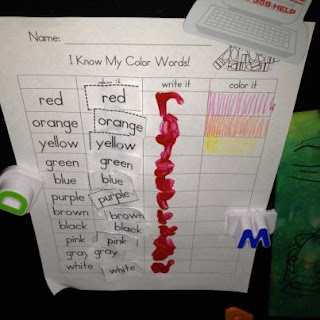 359-HELP
Name:
I Know My Color Words!
glue it write it color it
red red
orange orange
yellow yellow
green green
blue blue
purple purple
brown brown
black black
pink pink
gray gray
white white
M